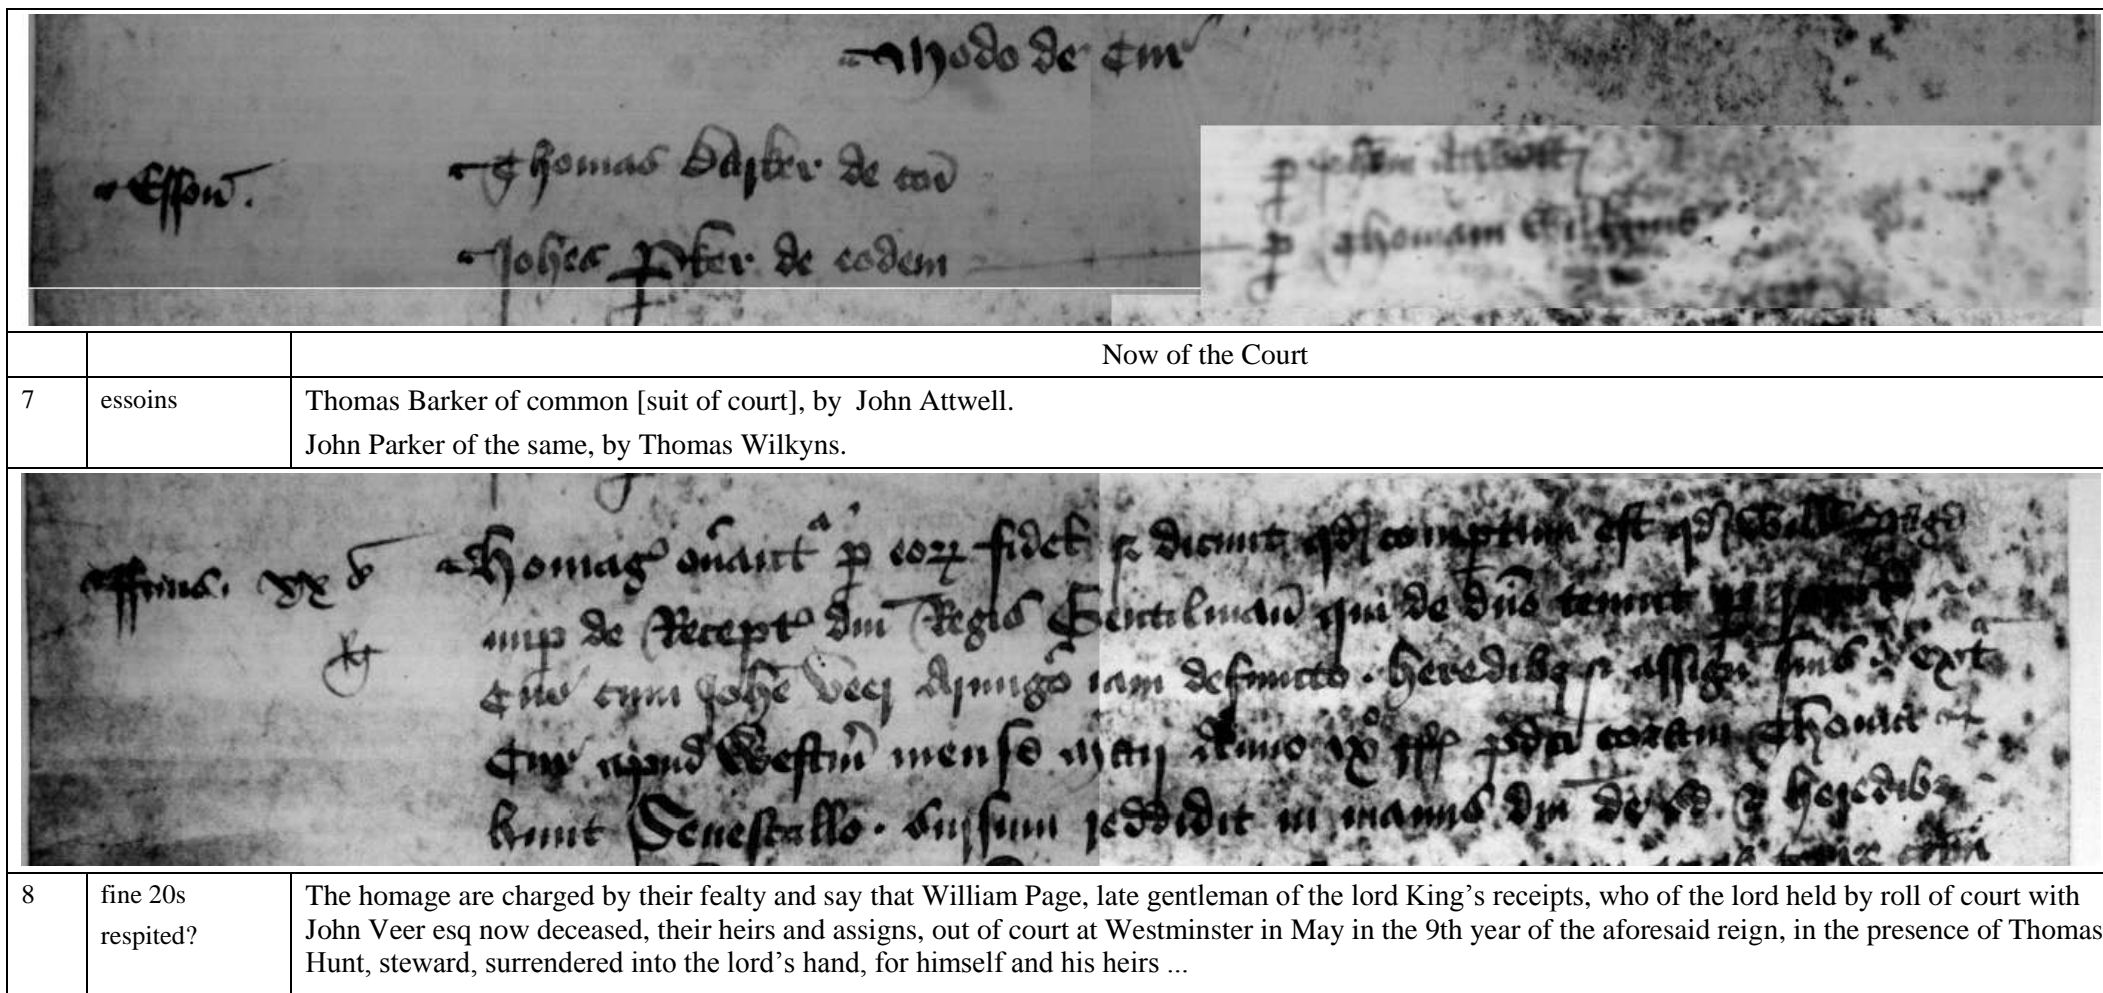 Modo de Cur
Thomas Barker de coi
Esson.
Johes Parker de eodem
p Thomam Wilkyns
Now of the Court
7 essoins Thomas Barker of common [suit of court], by John Attwell.
John Parker of the same, by Thomas Wilkyns.
ffinis. xx s Homag onant p eor fidel & dicunt qd comptum est qd Will Page
nup de Recept dni Regis Gentilman qui de dno tenuit p
Cur cum Johe Veer Armigo iam defuncto. heredibz & assign suis ext
Cur apud Westm mense Maij Anno ix pdci coram Thoma
hunt Senescallo. sursum reddidit in manus dni de se & heredibz
8 fine 20s The homage are charged by their fealty and say that William Page, late gentleman of the lord King’s receipts, who of the lord held by roll of court with
respited? John Veer esq now deceased, their heirs and assigns, out of court at Westminster in May in the 9th year of the aforesaid reign, in the presence of Thomas
Hunt, steward, surrendered into the lord’s hand, for himself and his heirs ...